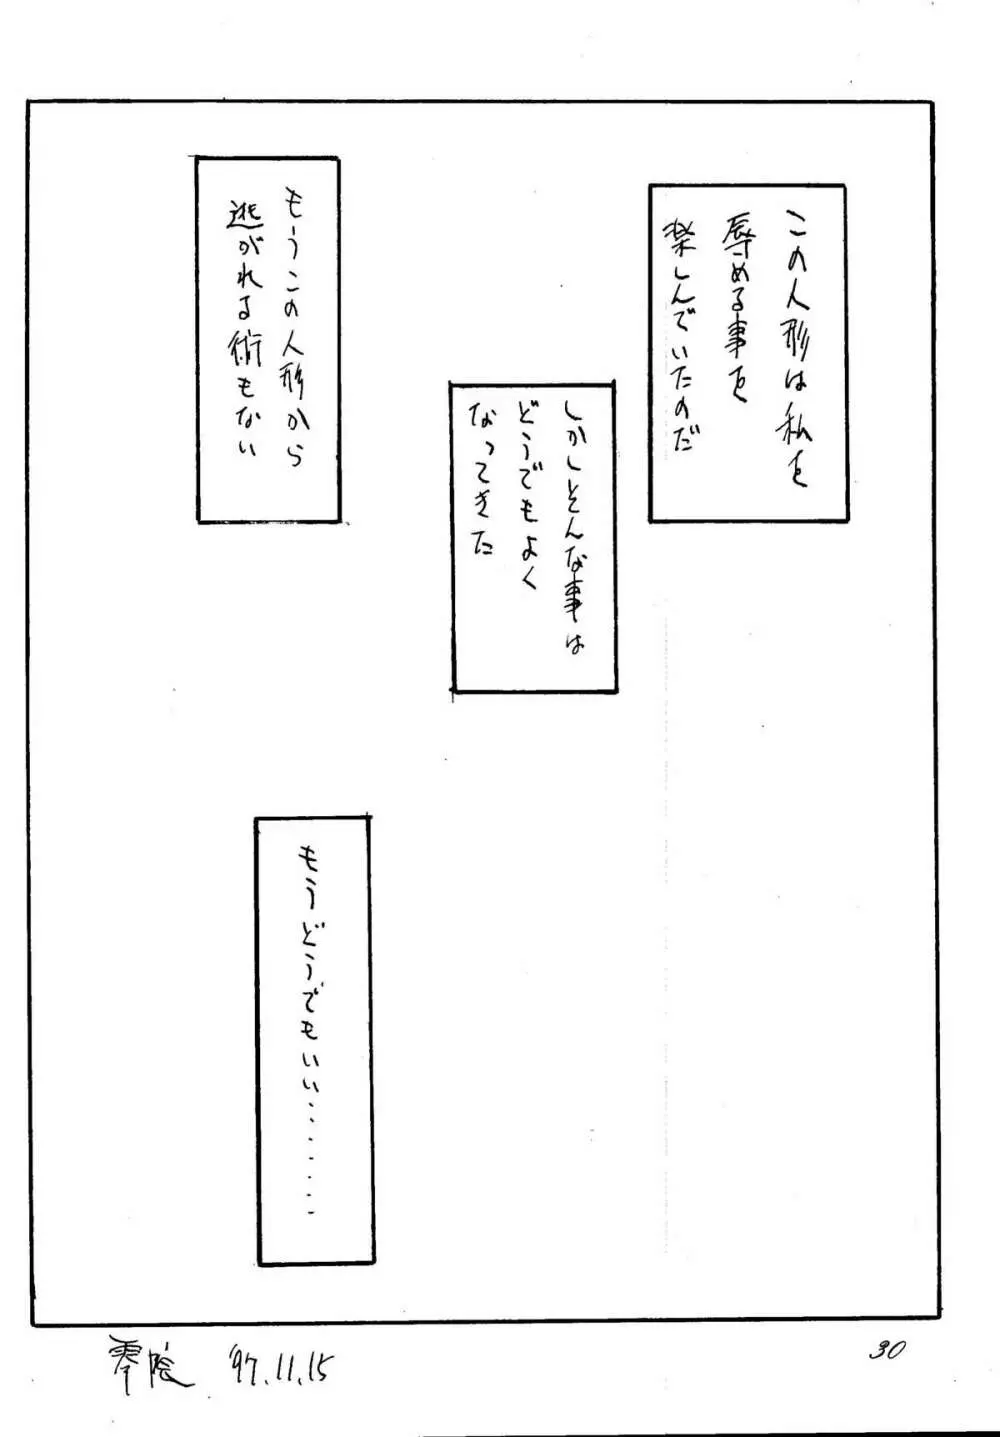 この人形は私を
辱める事を
楽しんでいたのだ
しかしそんな事は
どうでもよく
なってきた
もうこの人形から
逃がれる術もない
もうどうでもいい‥‥‥‥
零陰 '97.11.15
30